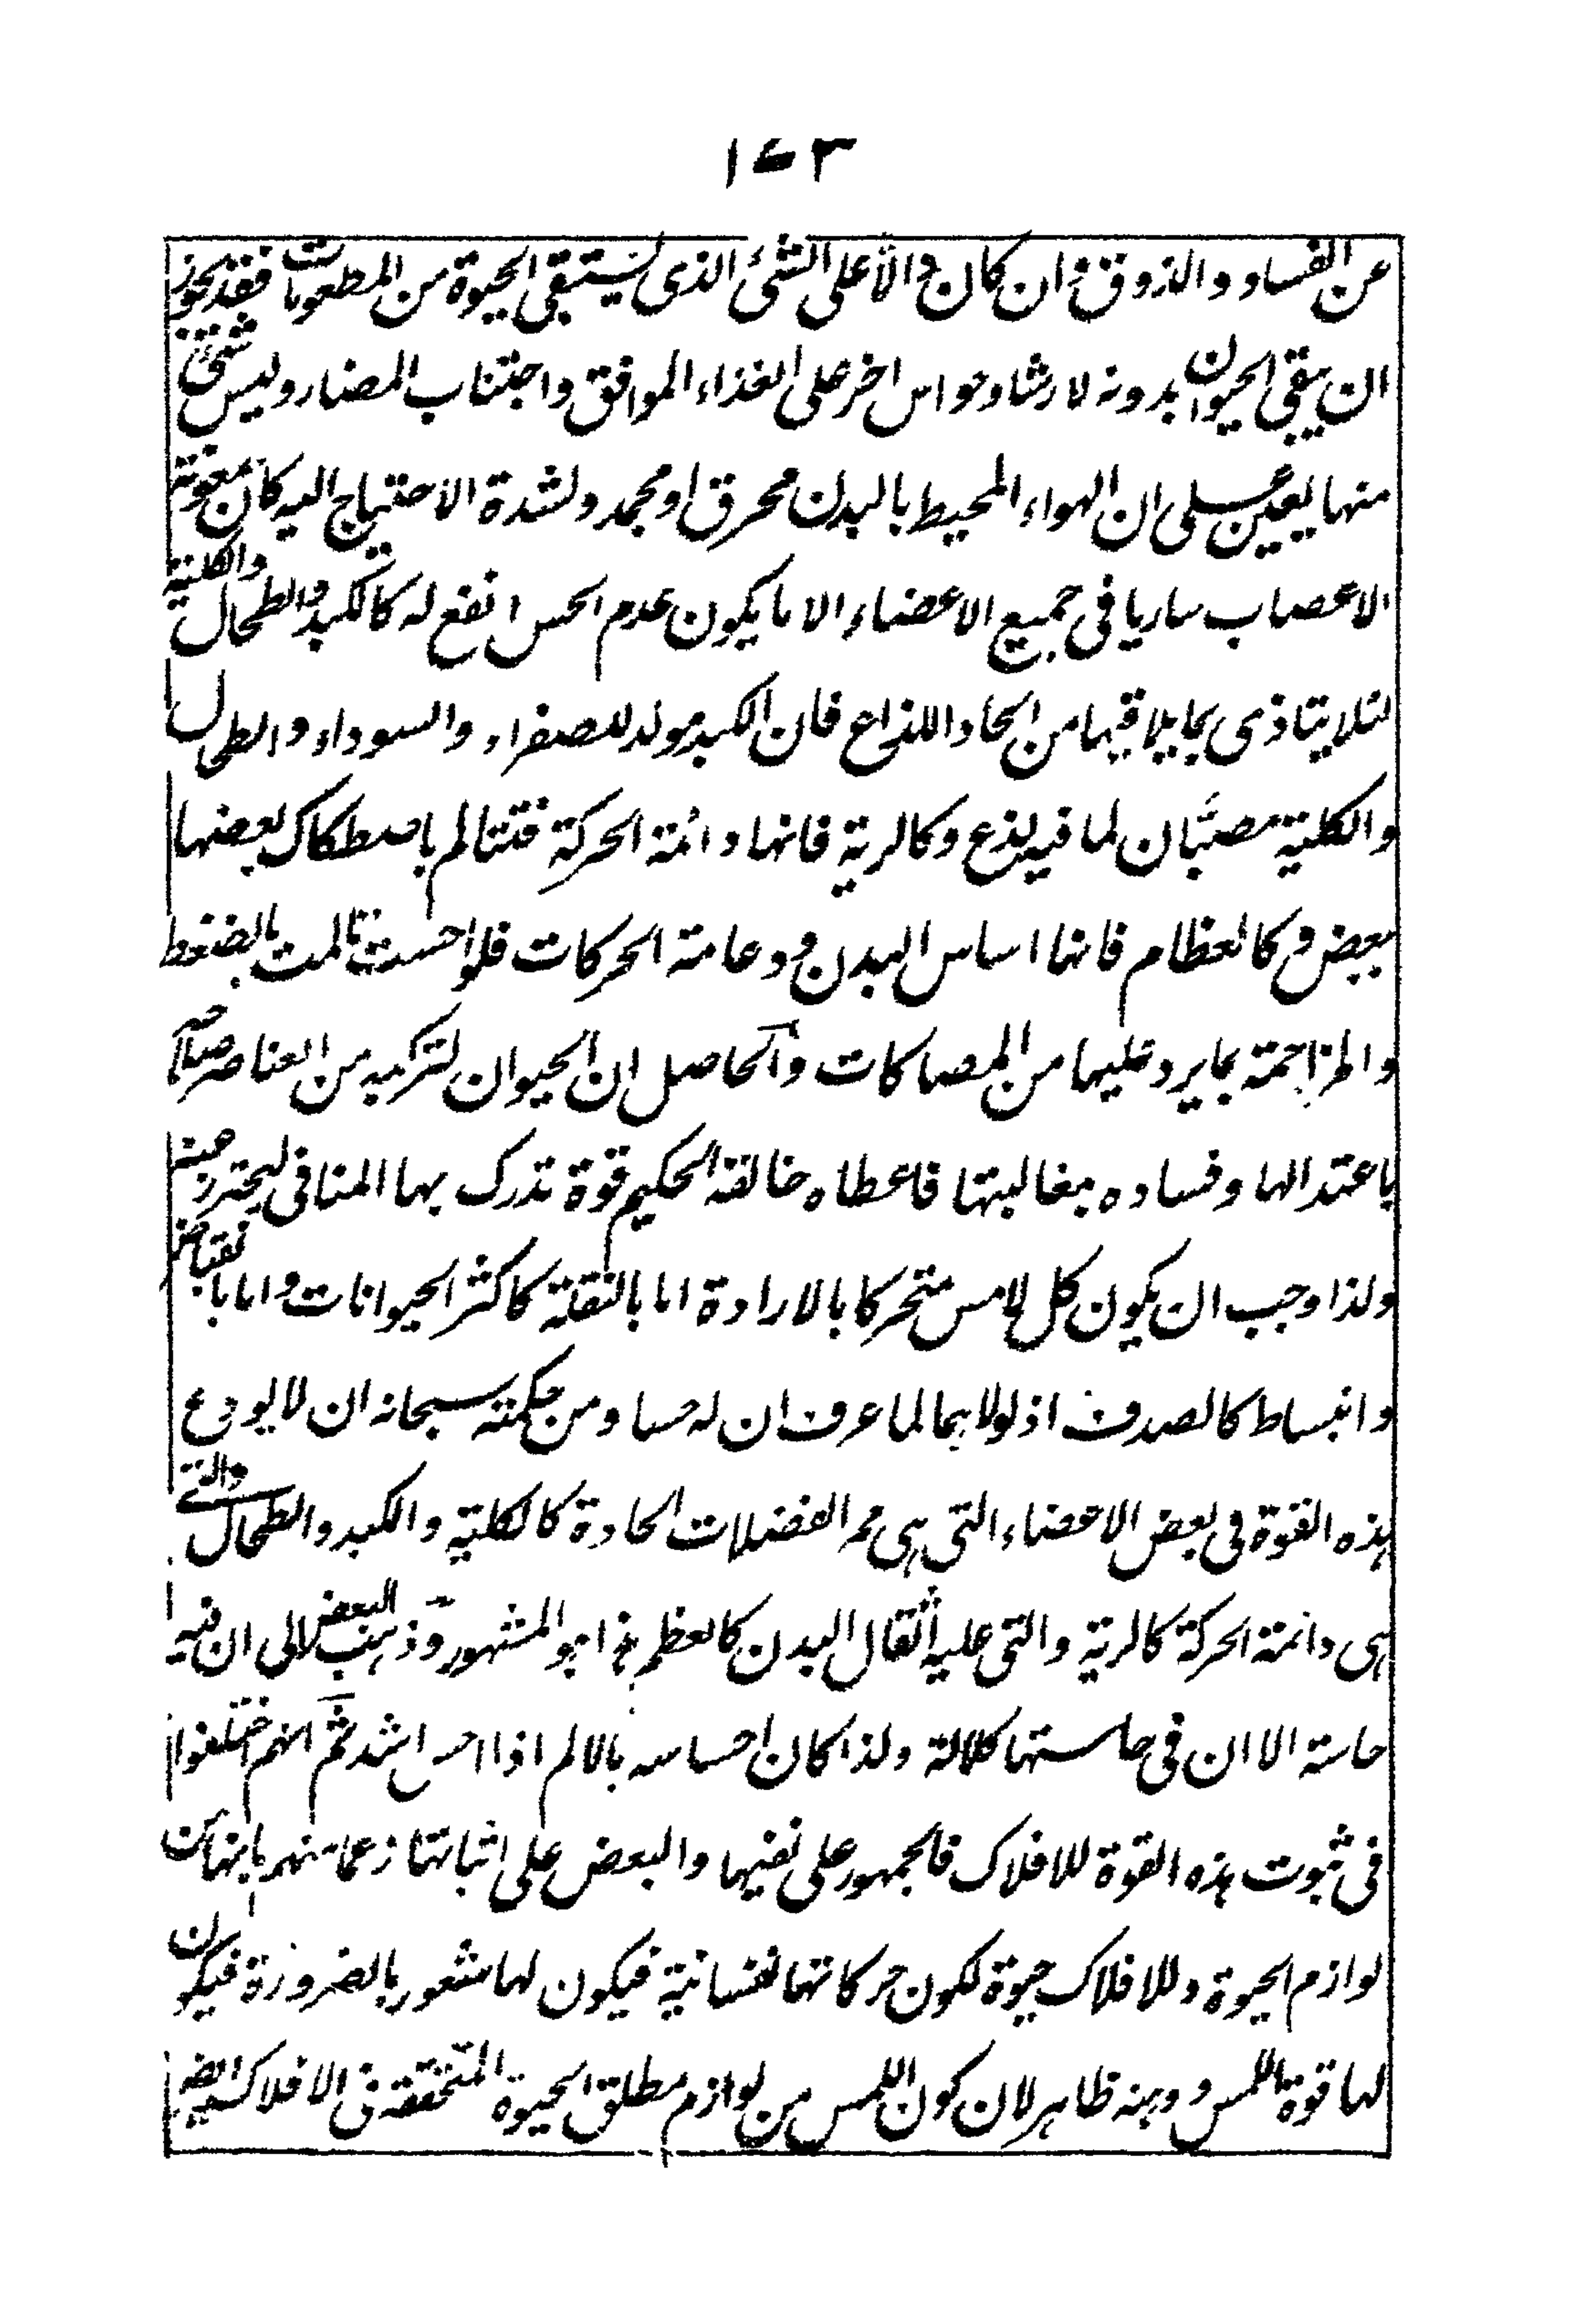 ١٧٣
عن الفساد والذوق وان كان دالا على الشئ الذى يستبقى الحيوة من المطعومات فقد يجوز
ان يبقى الحيوان بدونه لارشاد حواس اخر على الغذاء الموافق واجتناب المضار وليس شئ
منها يعين على ان الهواء المحيط بالبدن محرق او مجمد ولشدة الاحتياج اليه كان بمعونة
الاعصاب ساريا فى جميع الاعضاء الا ما يكون عدم الحس انفع له كالكبد والطحال والكلية
لئلا يتاذى بما يلاقيها من الحاد اللذاع فان الكبد مولد للصفراء والسوداء والطحال
والكلية مصبّان لما فيه لذع وكالرية فانها دائمة الحركة فتتالم باصطكاك بعضها
ببعض وكالعظام فانها اساس البدن ودعامة الحركات فلو احست تالمت بالضغط
والمزاحمة بما يرد عليها من المصاكات والحاصل ان الحيوان لتركبه من العناصر صلاحه
باعتدالها وفساده بمغالبتها فاعطاه خالقه الحكيم قوة تدرك بها المنافى ليحترز عنه
ولذا وجب ان يكون كل لامس متحركا بالارادة اما بالنقلة كاكثر الحيوانات واما بانقباض
وانبساط كالصدف اذ لولاهما لما عرف ان له حسا ومن حكمته سبحانه ان لا يودع
هذه القوة فى بعض الاعضاء التى هى ممر الفضلات الحادة كالكلية والكبد والطحال والتى
هى دائمة الحركة كالرية والتى عليه اثقال البدن كالعظم هذا هو المشهور وذهب البعض الى ان فيه
حاسة الا ان فى حاستها كلالة ولذا كان احساسه بالالم اذا احس اشد ثم انهم اختلفوا
فى ثبوت هذه القوة للافلاك فالجمهور على نفيها والبعض على اثباتها زعما منهم بانها من
لوازم الحيوة وللافلاك حيوة لكون حركاتها نفسانية فيكون لها شعور بالضرورة فيكون
لها قوة اللمس ووهنه ظاهر لان كون اللمس من لوازم مطلق الحيوة المتحققة فى الافلاك ايضا